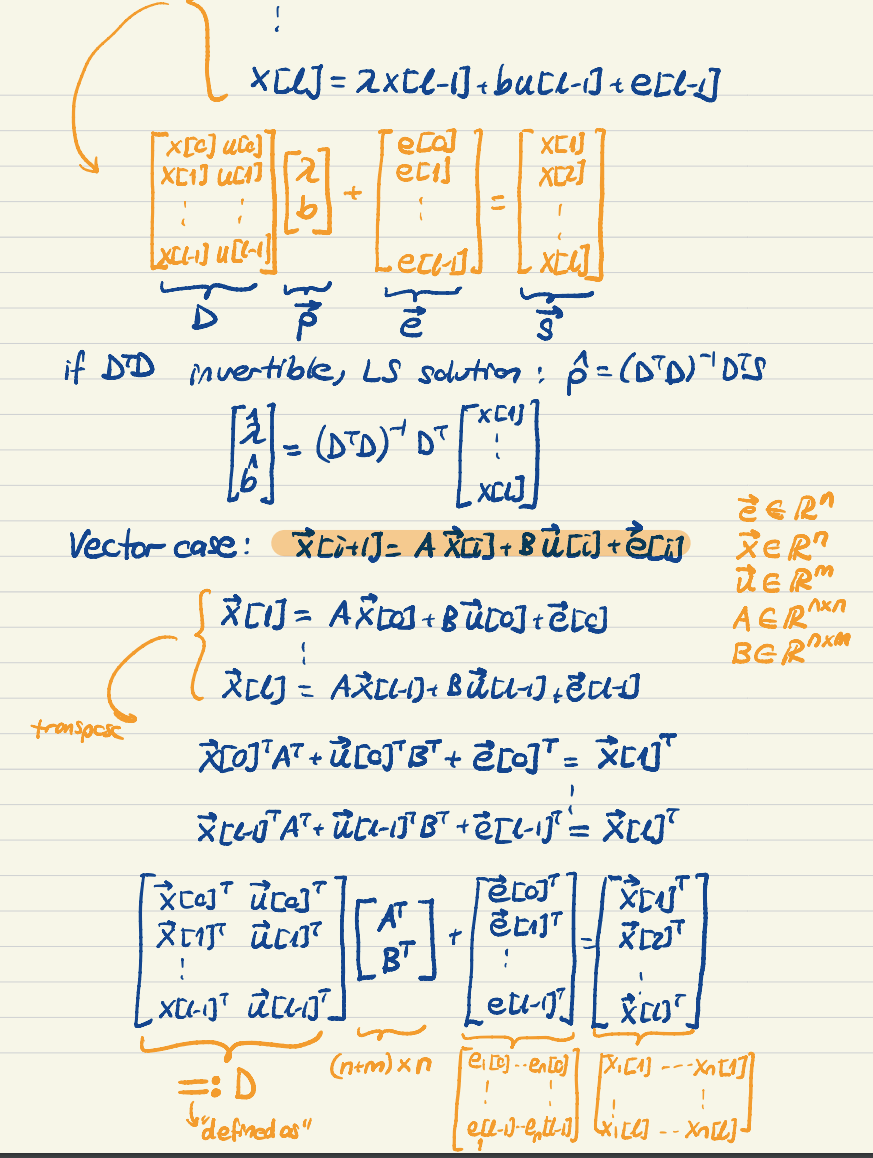 ⋮
x[l] = λx[l-1] + bu[l-1] + e[l-1]
[x[0] u[0]; x[1] u[1]; ⋮ ⋮; x[l-1] u[l-1]] [λ; b] + [e[0]; e[1]; ⋮; e[l-1]] = [x[1]; x[2]; ⋮; x[l]]
D p⃗ e⃗ s⃗
if DᵀD invertible, LS solution: p̂ = (DᵀD)⁻¹DᵀS
[λ̂; b̂] = (DᵀD)⁻¹ Dᵀ [x[1]; ⋮; x[l]]
Vector case: x⃗[i+1] = A x⃗[i] + B u⃗[i] + e⃗[i]
e⃗ ∈ ℝⁿ
x⃗ ∈ ℝⁿ
u⃗ ∈ ℝᵐ
A ∈ ℝⁿˣⁿ
B ∈ ℝⁿˣᵐ
x⃗[1] = A x⃗[0] + B u⃗[0] + e⃗[0]
⋮
x⃗[l] = A x⃗[l-1] + B u⃗[l-1] + e⃗[l-1]
transpose
x⃗[0]ᵀAᵀ + u⃗[0]ᵀBᵀ + e⃗[0]ᵀ = x⃗[1]ᵀ
⋮
x⃗[l-1]ᵀAᵀ + u⃗[l-1]ᵀBᵀ + e⃗[l-1]ᵀ = x⃗[l]ᵀ
[x⃗[0]ᵀ u⃗[0]ᵀ; x⃗[1]ᵀ u⃗[1]ᵀ; ⋮; x[l-1]ᵀ u⃗[l-1]ᵀ] [Aᵀ; Bᵀ] + [e⃗[0]ᵀ; e⃗[1]ᵀ; ⋮; e[l-1]ᵀ] = [x⃗[1]ᵀ; x⃗[2]ᵀ; ⋮; x⃗[l]ᵀ]
=: D (n+m)×n [e₁[0] ... eₙ[0]; ⋮ ⋮; e₁[l-1] ... eₙ[l-1]] [x₁[1] ... xₙ[1]; ⋮ ⋮; x₁[l] ... xₙ[l]]
"defined as"